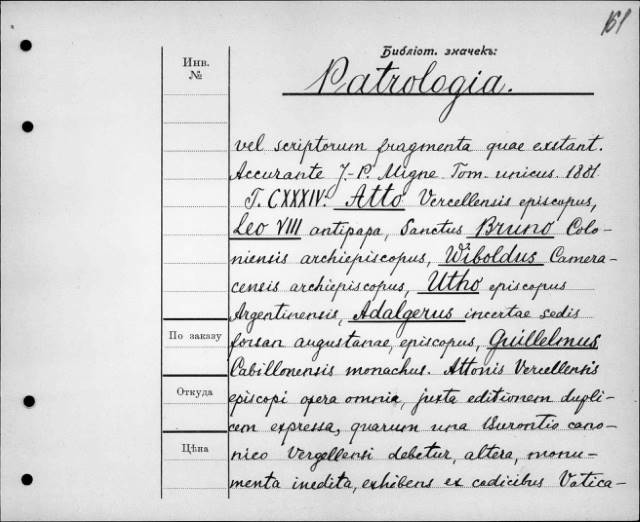 161
Библіот. значекъ:
Инв.
№
Patrologia.
vel scriptorum fragmenta quae exstant.
Accurante J.-P. Migne Tom. unicus. 1881.
T. CXXXIV. Atto Vercellensis episcopus,
Leo VIII antipapa, Sanctus Bruno Colo-
niensis archiepiscopus, Wiboldus Camera-
censis archiepiscopus, Utho episcopus
Argentinensis, Adalgerus incertae sedis
По заказу
forsan augustanae, episcopus, Guillelmus
Cabillonensis monachus. Attonis Vercellensis
Откуда
episcopi opera omnia, juxta editionem dupli-
cem expressa, quarum una Burontio cano-
Цѣна
nico Vergellensi debetur, altera, monu-
menta inedita, exhibens ex codicibus Vatica-